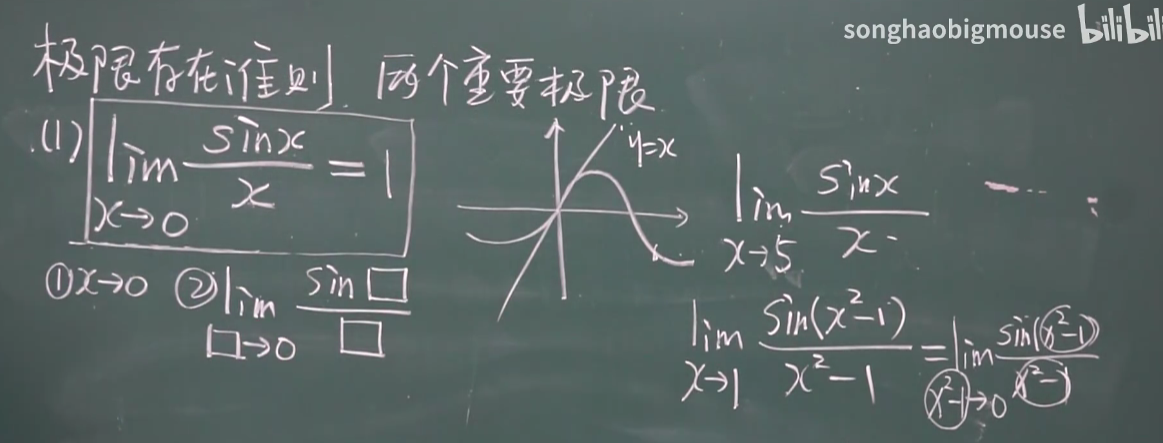 songhaobigmouse bilibili
极限存在准则 两个重要极限
(1) lim x→0 sinx/x = 1
y=x
lim x→5 sinx/x
①x→0 ②lim □→0 sin□/□
lim x→1 sin(x²-1)/x²-1 = lim x²-1→0 sin(x²-1)/x²-1